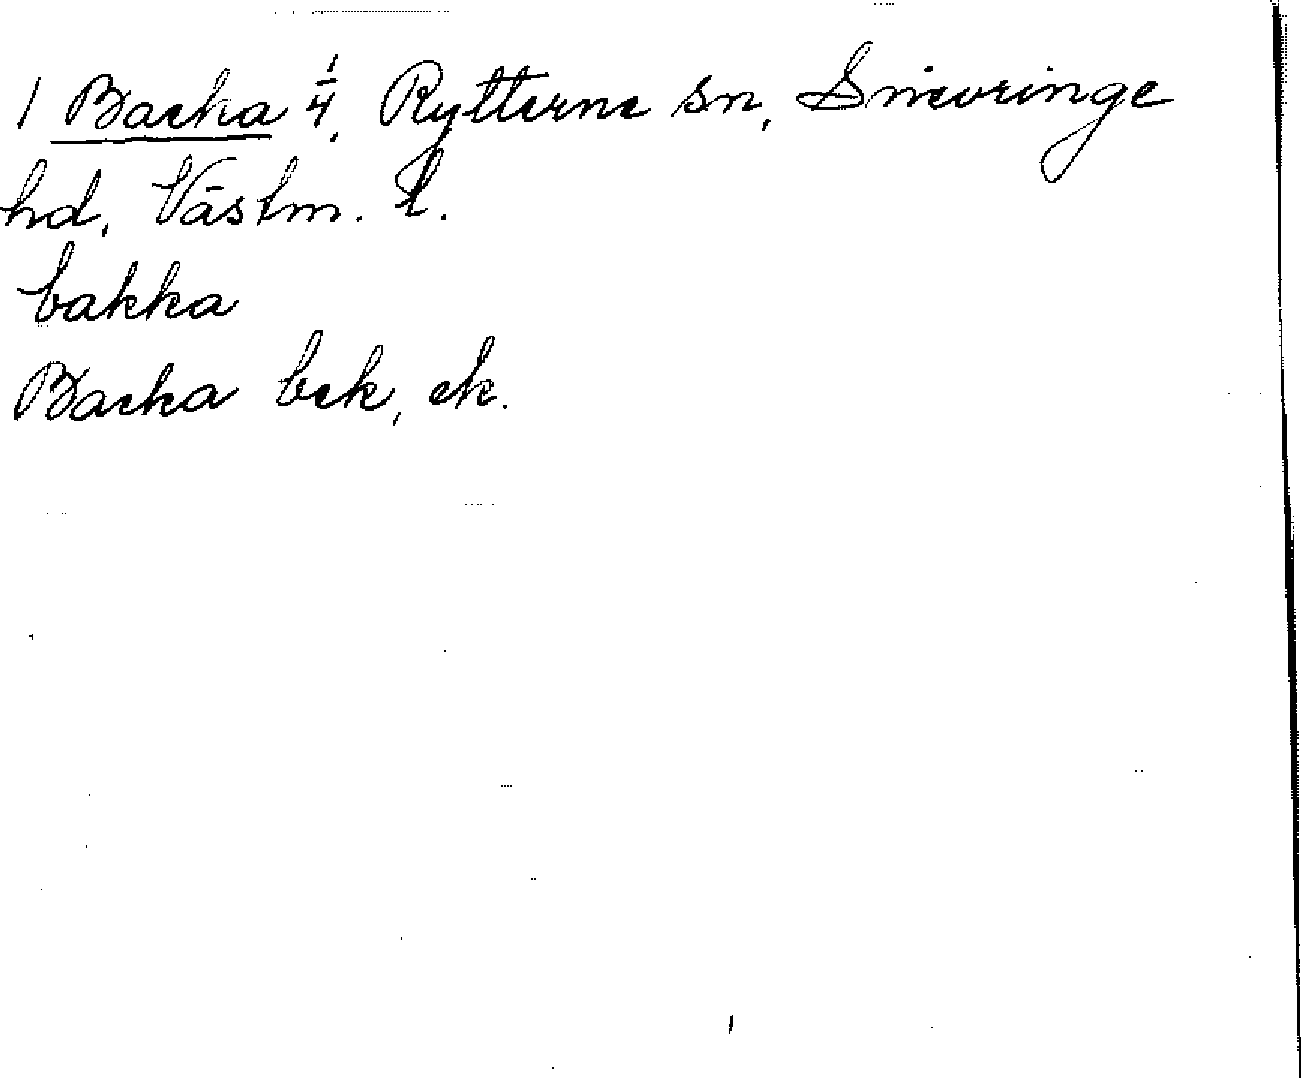 1 Backa 1/4, Rytterne sn, Snevringe
hd, Västm. l.
bakka
Backa bek, ek.